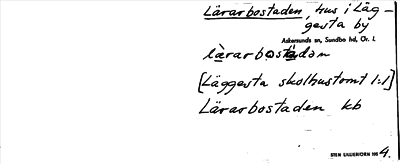 Lärarbostaden, hus i Läg-
gesta by
Askersunds sn, Sundbo hd, Ör. l.
lärarbostadən
[Läggesta skolhustomt 1:1]
Lärarbostaden kb
STEN LILLIEHORN 195 4.